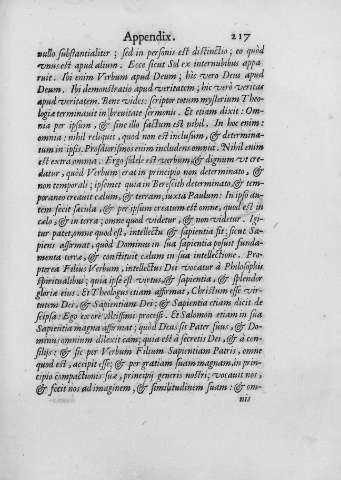 Appendix. 217
nullo substantialiter; sed in personis est distinctio; eo quòd
vnus est apud alium. Ecce sicut Sol ex internubibus appa
ruit. Ibi enim Verbum apud Deum; hic vero Deus apud
Deum. Ibi demonstratio apud veritatem; hic verò veritas
apud veritatem. Bene vides: scriptor totum mysterium Theo-
logiæ terminavit in brevitate sermonis. Et etiam dixit: Om-
nia per ipsum, & sine illo factum est nihil. In hoc enim:
omnia: nihil reliquit, quod non est inclusum, & determina-
tum in ipsis. Prolatorismo enim includens omnia. Nihil enim
est extra omnia. Ergo fidele est verbum, & dignum vt cre-
datur, quòd Verbum erat in principio non determinato, &
non temporali; ipsemet quia in Beresith determinato, & tem-
poraneo creauit cælum, & terram, iuxta Paulum: In ipso au-
tem fecit sæcula, & per ipsum creatum est omne, quod est in
cælo, & in terra; omne quod videtur, & non videtur. Igi
tur patet, omne quod est, intellectu & sapientia sit; sicut Sa-
piens affirmat, quòd Dominus in sua sapientia posuit funda-
menta terræ, & constituit cælum in sua intellectione. Pro-
pterea Filius Verbum, intellectus Dei vocatur à Philosophis
spiritualibus; quia ipse est virtus, & sapientia, & splendor
gloriæ eius. Et Theologus etiam affirmat, Christum esse vir-
tutem Dei, & Sapientiam Dei; & Sapientia etiam dicit de
seipsa: Ego ex ore Altissimi processi. Et Salomon etiam in sua
Sapientia magna affirmat; quòd Deus sit Pater suus, & Do-
minus omnium dilexit eam; quia est à secretis Dei, & à con-
silijs: & sic per Verbum Filium Sapientiam Patris, omne
quod est, accipit esse; & per gratiam suam magnam, in prin-
cipio compactionis suæ, principij generis nostri; vocauit nos,
& fecit nos ad imaginem, & similitudinem suam: & om-
nis